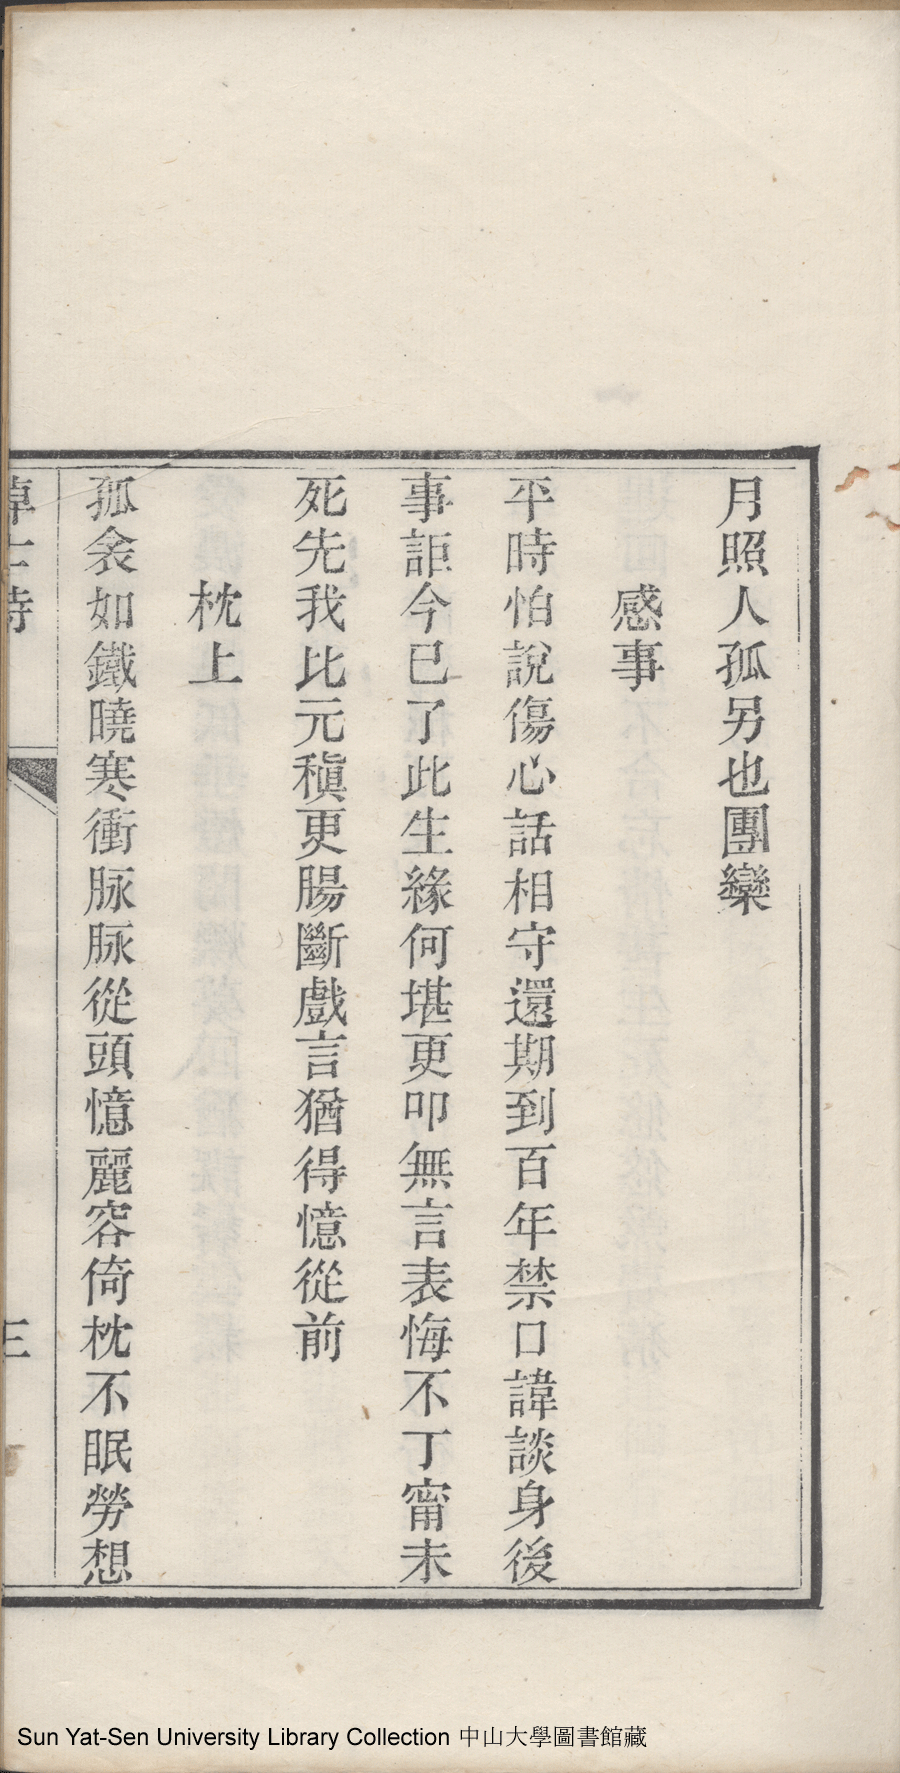 月照人孤另也團欒
感事
平時怕說傷心話相守還期到百年禁口諱談身後
事詎今已了此生緣何堪更叩無言表悔不丁甯未
死先我比元稹更腸斷戲言猶得憶從前
枕上
孤衾如鐵曉寒衝脉脉從頭憶麗容倚枕不眠勞想
悼亡詩
三
Sun Yat-Sen University Library Collection 中山大學圖書館藏